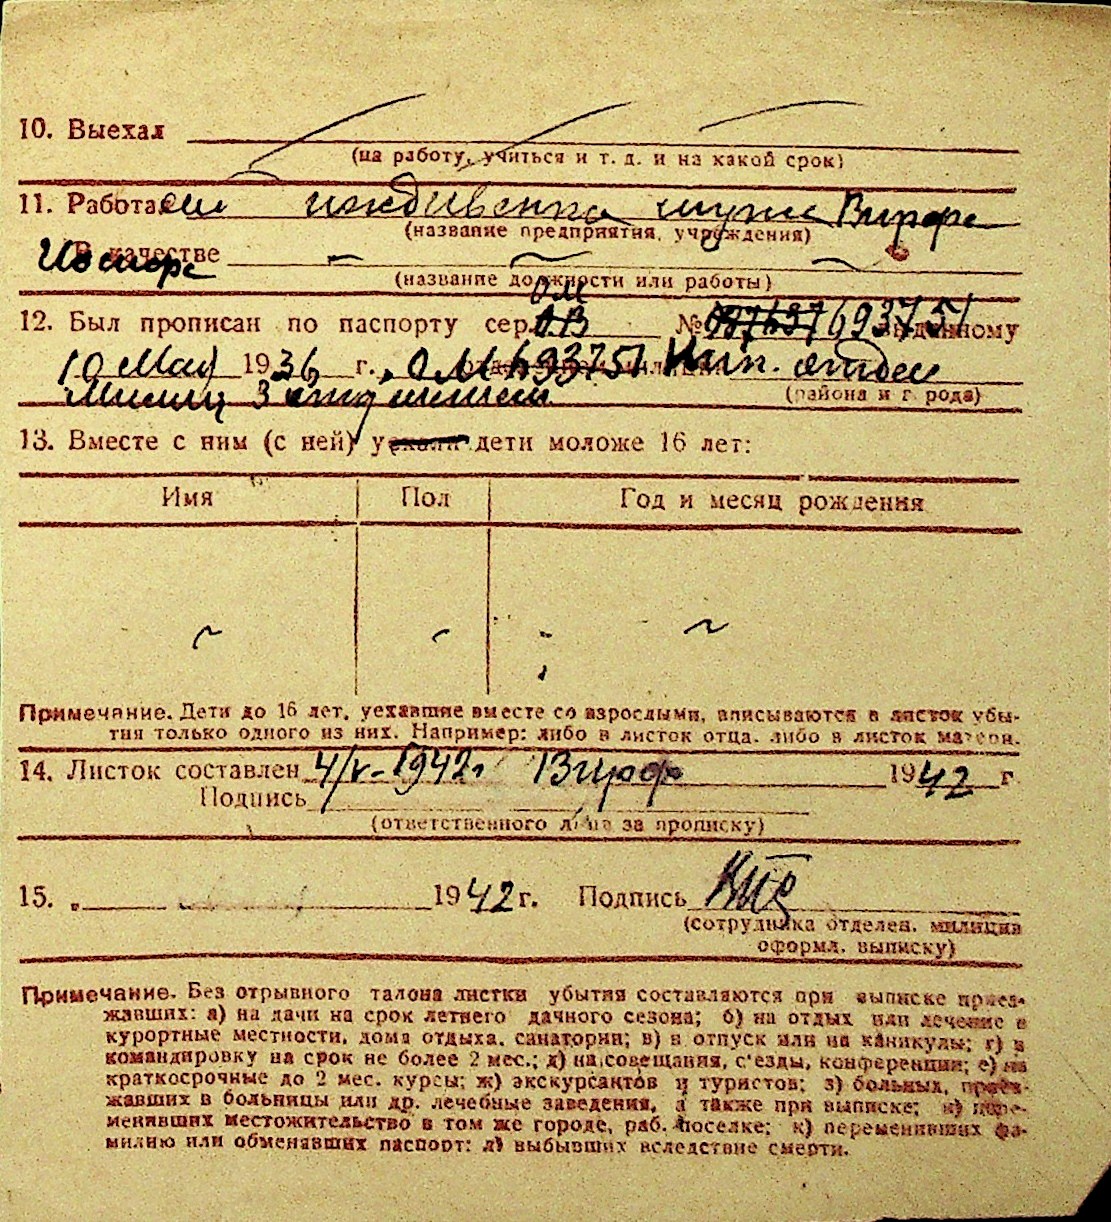 10. Выехал
(на работу, учиться и т. д. и на какой срок)
11. Работал иждивенка мужа
(название предприятия, учреждения)
В качестве
(название должности или работы)
ОМ
12. Был прописан по паспорту сер. № 693751 выданному
10 Мая 1936 г. ОМ 693751
(района и города)
13. Вместе с ним (с ней) уехали дети моложе 16 лет:
Имя Пол Год и месяц рождения
Примечание. Дети до 16 лет, уехавшие вместе со взрослыми, вписываются в листок убы-
тия только одного из них. Например: либо в листок отца, либо в листок матери.
14. Листок составлен 4/V-1942 г 1942 г
Подпись
(ответственного лица за прописку)
15. 1942 г. Подпись
(сотрудника отделен. милиции
оформл. выписку)
Примечание. Без отрывного талона листки убытия составляются при выписке приез-
жавших: а) на дачи на срок летнего дачного сезона; б) на отдых или лечение в
курортные местности, дома отдыха, санатории; в) в отпуск или на каникулы; г) в
командировку на срок не более 2 мес.; д) на совещания, с'езды, конференции; е) на
краткосрочные до 2 мес. курсы; ж) экскурсантов и туристов; з) больных, приез-
жавших в больницы или др. лечебные заведения, а также при выписке; и) пере-
менивших местожительство в том же городе, раб. поселке; к) переменивших фа-
милию или обменявших паспорт; л) выбывших вследствие смерти.